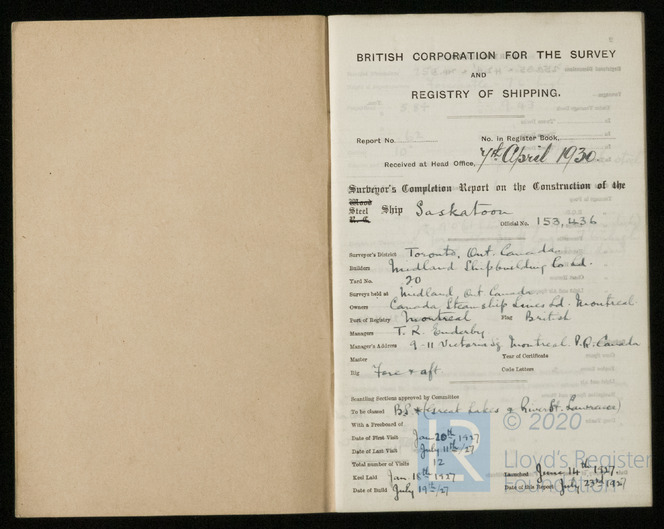 BRITISH CORPORATION FOR THE SURVEY
AND
REGISTRY OF SHIPPING.
Report No. No. in Register Book,
Received at Head Office, 7th April 1930
Surveyor's Completion Report on the Construction of the
Wood
Steel Ship Saskatoon
Official No. 153,436
Surveyor's District Toronto, Ont. Canada
Builders Midland Shipbuilding Co Ld.
Yard No. 20
Surveys held at Midland, Ont Canada
Owners Canada Steamship Lines Ld. Montreal
Port of Registry Montreal Flag British
Managers T. R. Enderby
Manager's Address 9-11 Victoria Sq Montreal P.Q. Canada
Master Year of Certificate
Rig Fore & aft Code Letters
Scantling Sections approved by Committee
To be classed BS * (Great Lakes & River St. Lawrence)
With a Freeboard of
Date of First Visit Jan 20th 1927
Date of Last Visit July 11th /27
Total number of Visits 12
Keel Laid Jan. 18th 1927 Launched June 14th 1927.
Date of Build July 19th/27 Date of this Report July 23rd 1927
© 2020
Lloyd's Register
Foundation